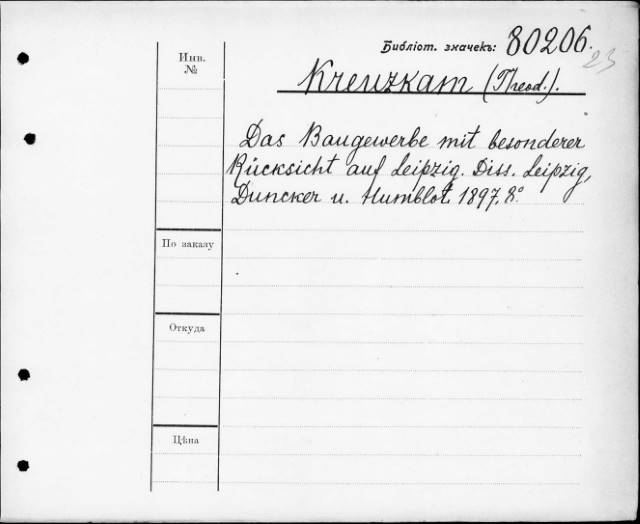 Библіот. значекъ: 80206.
23
Инв.
№
Kreuzkam (Theod.).
Das Baugewerbe mit besonderer
Rücksicht auf Leipzig. Diss. Leipzig,
Duncker u. Humblot, 1897. 8°.
По заказу
Откуда
Цѣна